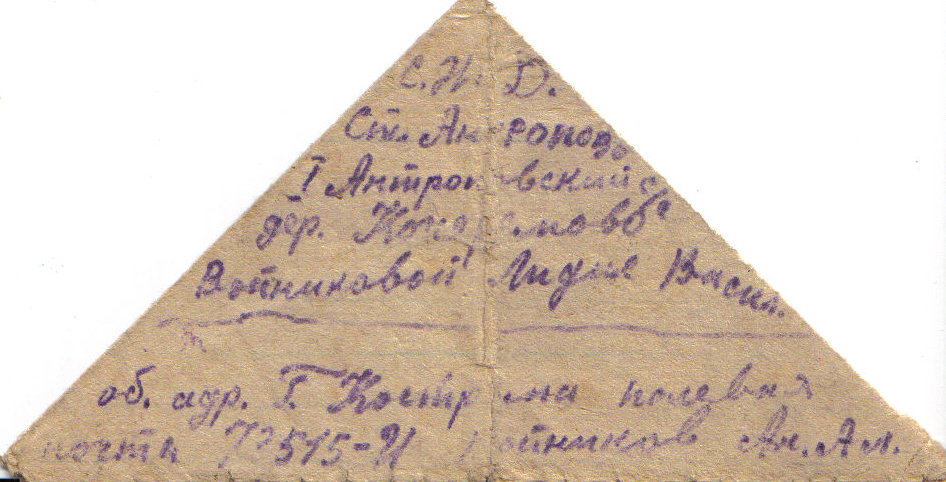 С. Ж. Д.
Ст. Антропово
I Антроповский с/с
дер.
Войниковой Лидие Васил.
об. адр. Г. Кострома полевая
почта 515-И Войников Ан. Ал.